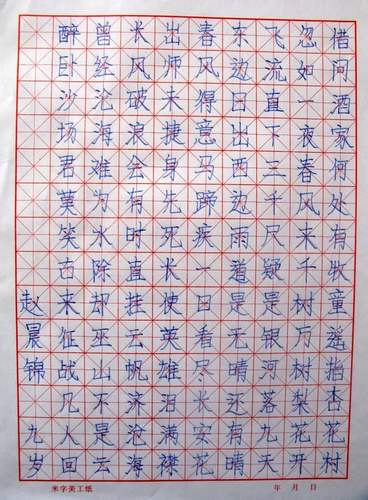 借问酒家何处有牧童遥指杏花村
忽如一夜春风来千树万树梨花开
飞流直下三千尺疑是银河落九天
东边日出西边雨道是无晴还有晴
春风得意马蹄疾一日看尽长安花
出师未捷身先死长使英雄泪满襟
长风破浪会有时直挂云帆济沧海
曾经沧海难为水除却巫山不是云
醉卧沙场君莫笑古来征战几人回
赵晨锦 九岁
米字美工纸 年 月 日